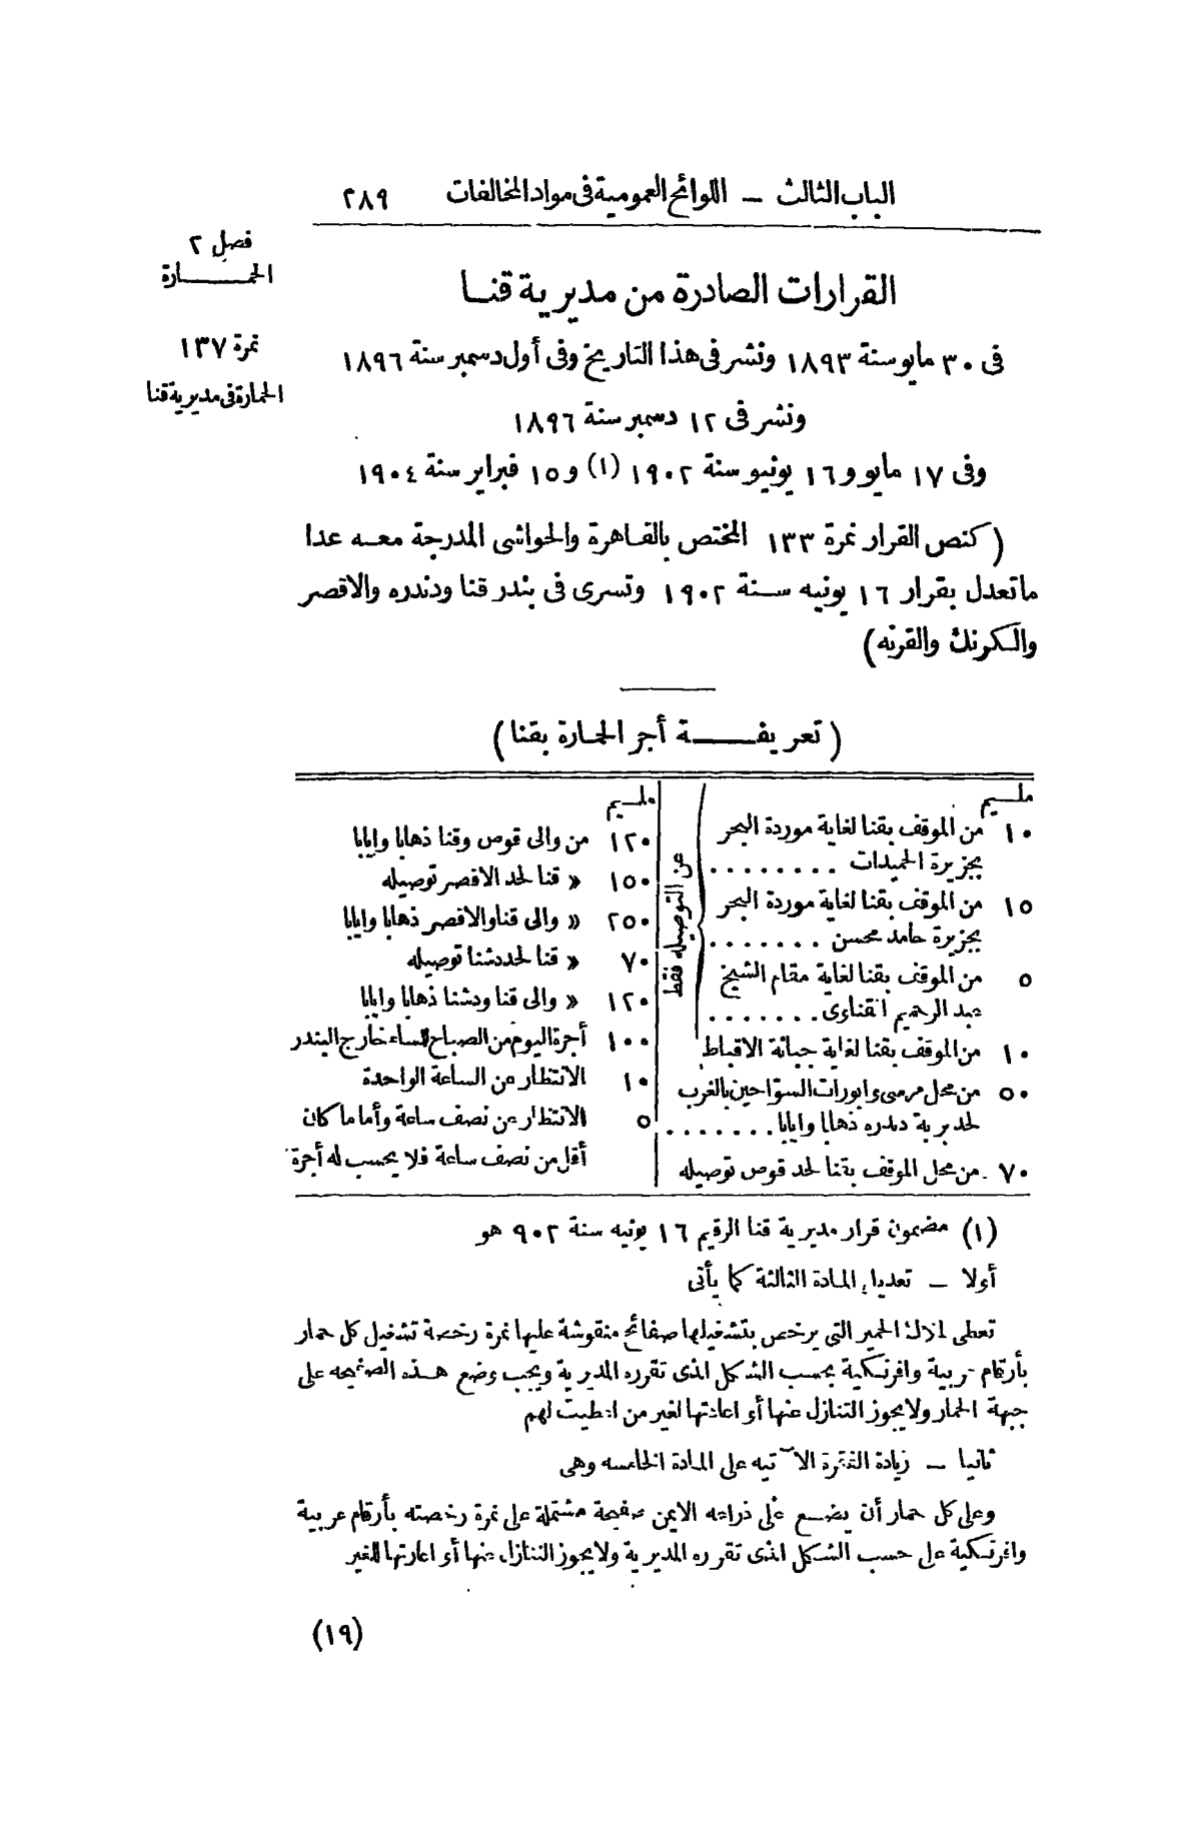 الباب الثالث — اللوائح العمومية فى مواد المخالفات ٢٨٩
فصل ٢
الحمـــارة
نمرة ١٣٧
الحمارة فى مديرية قنا
القرارات الصادرة من مديرية قنـا
فى ٣٠ مايو سنة ١٨٩٣ ونشر فى هذا التاريخ وفى أول دسمبر سنة ١٨٩٦
ونشر فى ١٢ دسمبر سنة ١٨٩٦
وفى ١٧ مايو و ١٦ يونيو سنة ١٩٠٢ (١) و ١٥ فبراير سنة ١٩٠٤
(كنص القرار نمرة ١٣٣ المختص بالقاهرة والحواشى المدرجة معه عدا
ماتعدل بقرار ١٦ يونيه سنة ١٩٠٢ وتسرى فى بندر قنا ودندره والاقصر
والكرنك والقرنه)
(تعريفــة أجر الحمارة بقنا)
مليم
١٠ من الموقف بقنا لغاية موردة البحر
بجزيرة الحميدات ........
١٥ من الموقف بقنا لغاية موردة البحر
بجزيرة حامد محسن .......
٥ من الموقف بقنا لغاية مقام الشيخ
عبد الرحيم القناوى .......
١٠ من الموقف بقنا لغاية جبانة الاقباط
٥٠ من محل مرسى وابورات السواحين بالغرب
لحد بربة دندره ذهابا وايابا .......
٧٠ من محل الموقف بقنا لحد قوص توصيله
عن التوصيله فقط
مليم
١٢٠ من والى قوص وقنا ذهابا وايابا
١٥٠ « قنا لحد الاقصر توصيله
٢٥٠ « والى قنا والاقصر ذهابا وايابا
٧٠ « قنا لحد دشنا توصيله
١٢٠ « والى قنا ودشنا ذهابا وايابا
١٠٠ أجرة اليوم من الصباح للمساء خارج البندر
١٠ الانتظار عن الساعة الواحدة
٥ الانتظار عن نصف ساعة وأما ما كان
أقل من نصف ساعة فلا يحسب له أجرة
(١) مضمون قرار مديرية قنا الرقيم ١٦ يونيه سنة ٩٠٢ هو
أولا — تعديل المادة الثالثة كما يأتى
تعطى لملاك الحمير التى يرخص بتشغيلها صفائح منقوشة عليها نمرة رخصة تشغيل كل حمار
بأرقام عربية وافرنكية بحسب الشكل الذى تقرره المديرية ويجب وضع هذه الصفيحه على
جبهة الحمار ولا يجوز التنازل عنها أو اعارتها لغير من أعطيت لهم
ثانيا — زيادة الفقرة الآتيه على المادة الخامسه وهى
وعلى كل حمار أن يضع على ذراعه الايمن صفيحة مشتملة على نمرة رخصته بأرقام عربية
وافرنكية على حسب الشكل الذى تقرره المديرية ولا يجوز التنازل عنها أو اعارتها للغير
(١٩)